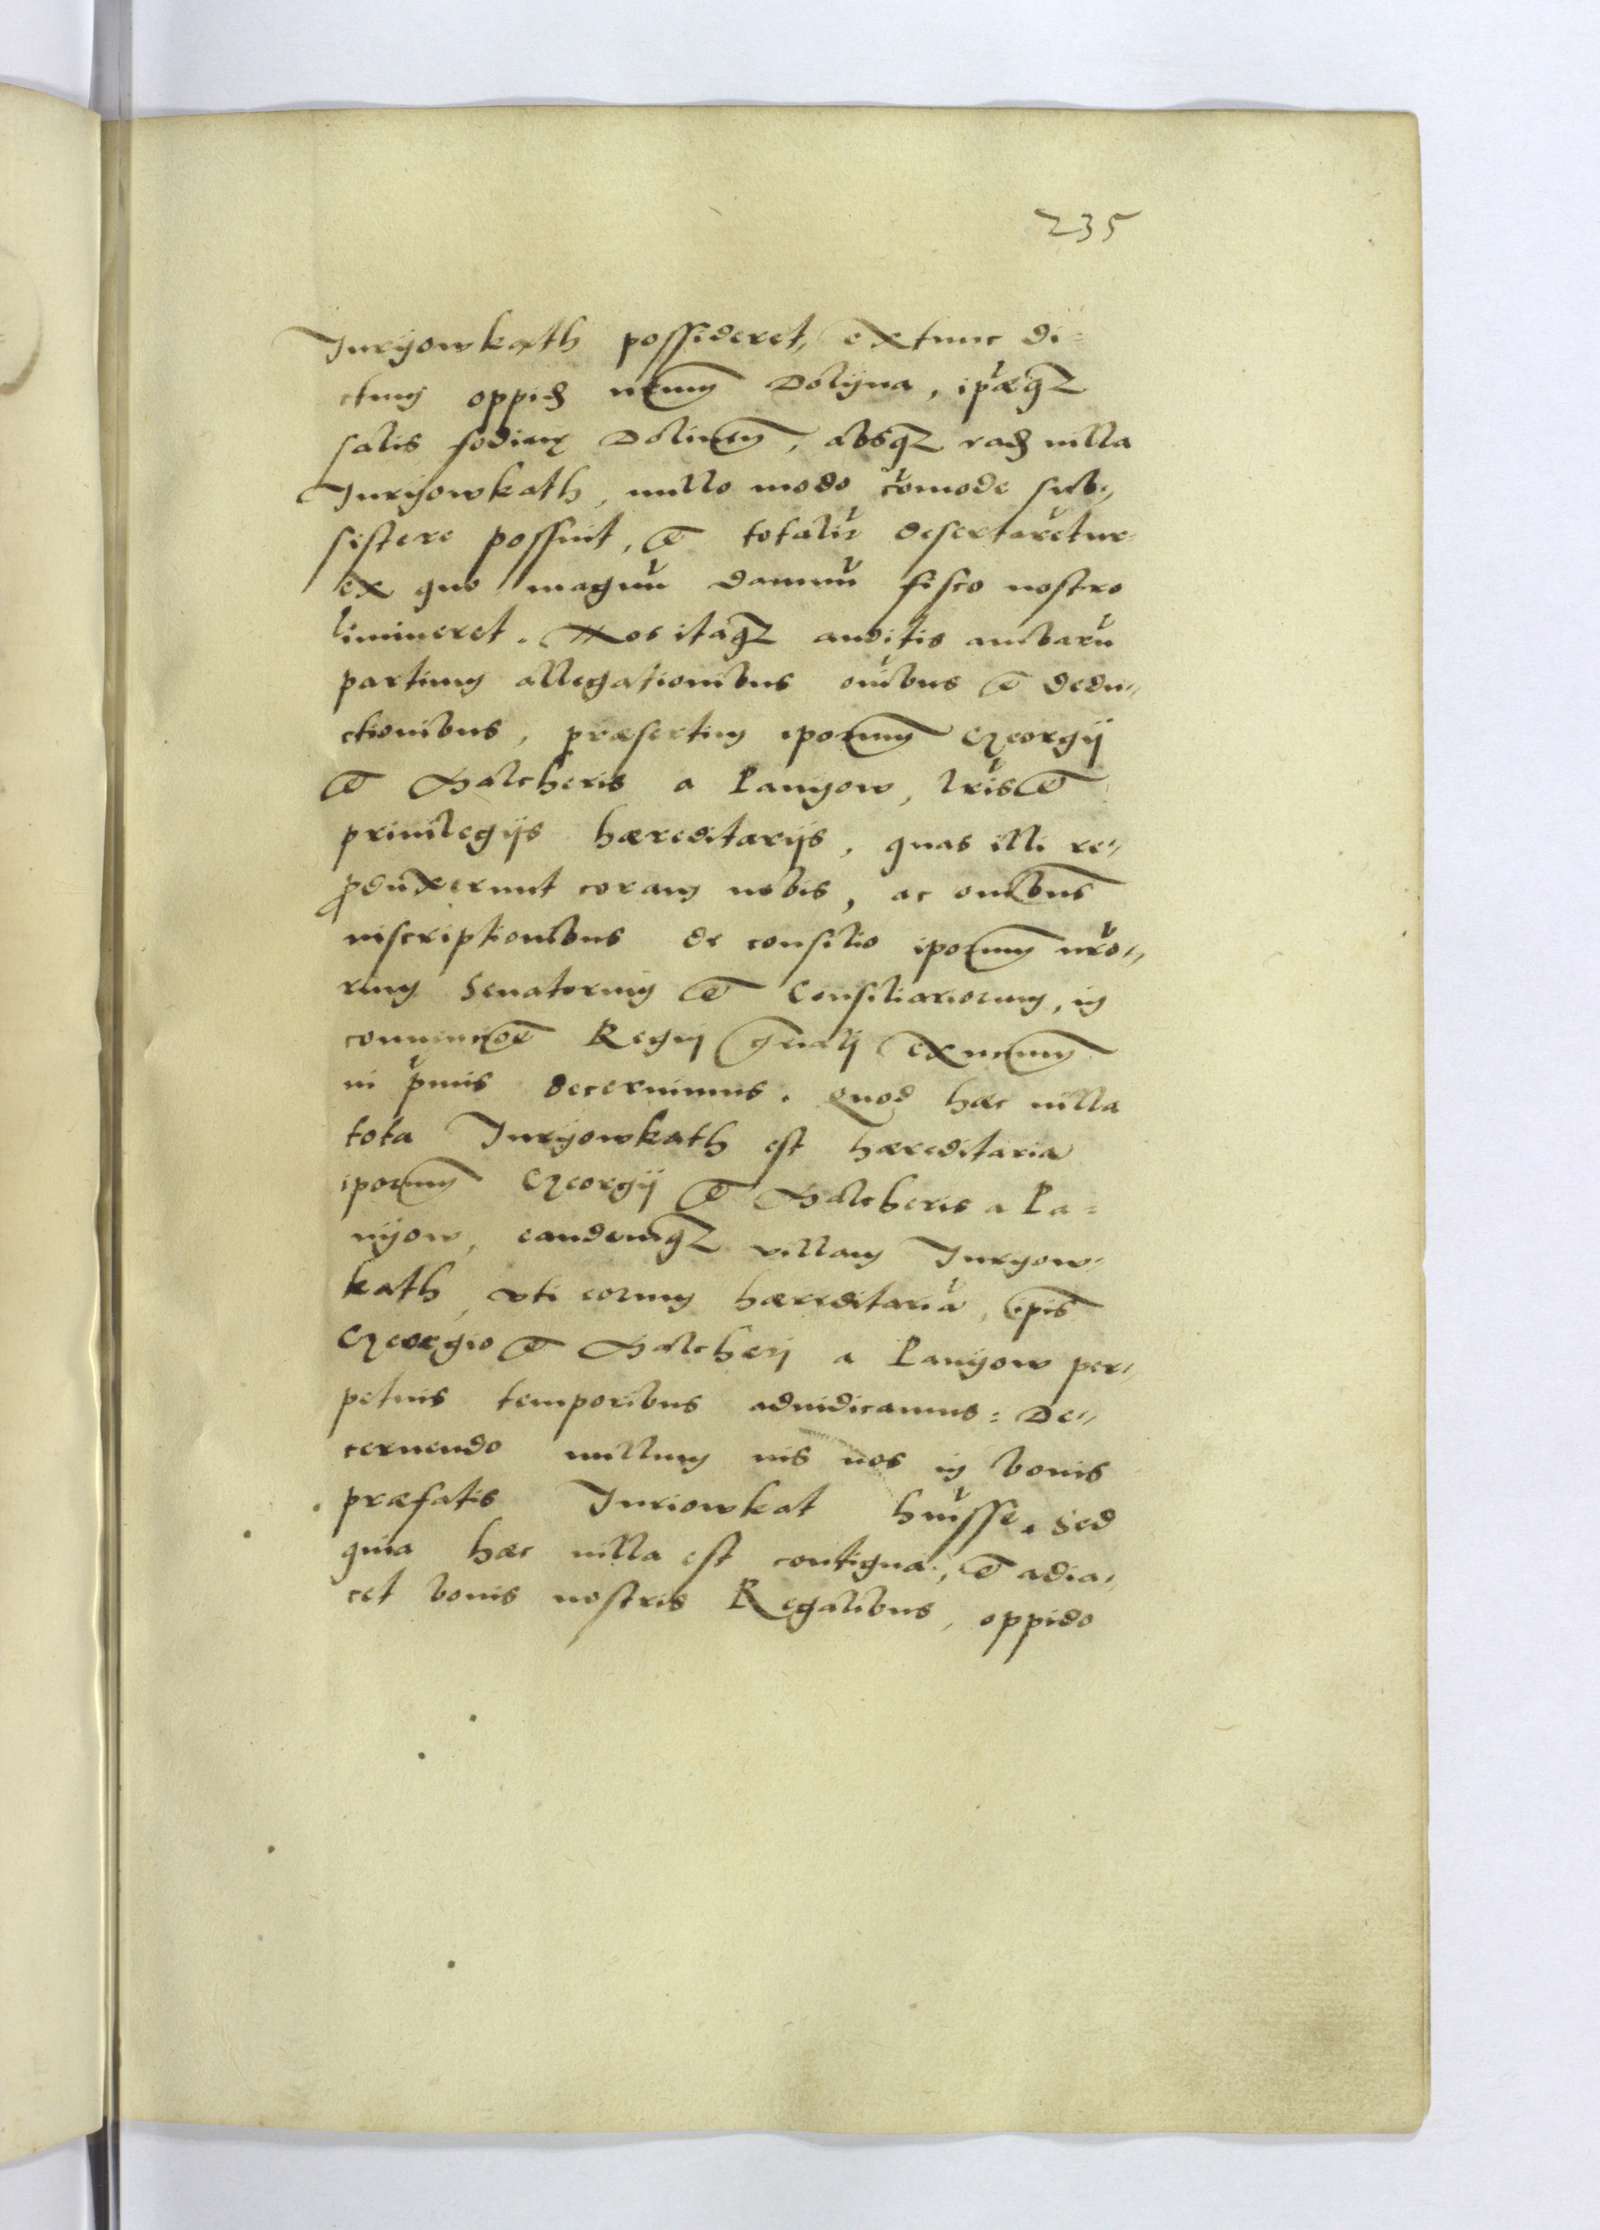 235
Juryowkath possideret, extunc di=
ctum oppid nrum Dolyna, ipaeq3
salis fodinæ Dolinen, absq3 rad villa
Juryowkath, nullo modo comode sub,,
sistere possint, et totalir desertaretur
ex quo magnu damnu fisco nostro
imineret. Nos itaq3 auditis ambaru
partium allegationibus oibus et dedu,,
ctionibus, præsertim iporum Georgij
et Balcheris a Panyow, lris et
priuilegijs hæreditarijs, quas illi re,,
produxerunt coram nobis, ac omibus
inscriptionibus de consilio iporum nro,,
rum Senatorum et Consiliariorum, in
conuencoe Regni grali ex nunc
in pmis decernimus. Quod hæc villa
tota Juryowkath est hæreditaria
iporum Georgij et Balcheris a Pa=
nyow, eandemq3 villam Juryow,
kath, vti eorum hæreditaria, ipis
Georgio et Balcheri a Panyow per,,
petuis temporibus adiudicamus: De,,
cernendo nullum ius nos in bonis
præfatis Juriowkat huisse. Sed
quia hæc villa est contigua, et adia,,
cet bonis nostris Regalibus, oppido